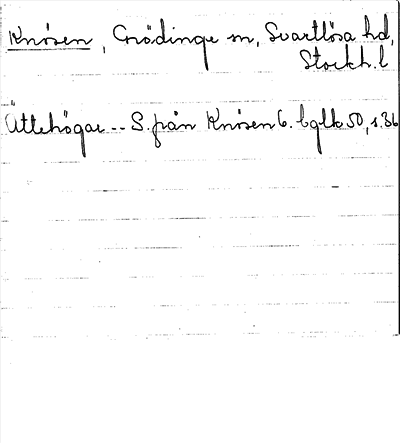 Knösen, Grödinge sn, Svartlösa hd,
Stockh. l
Ättehögar -- S. från Knösen 6. bglb 50, s. 36